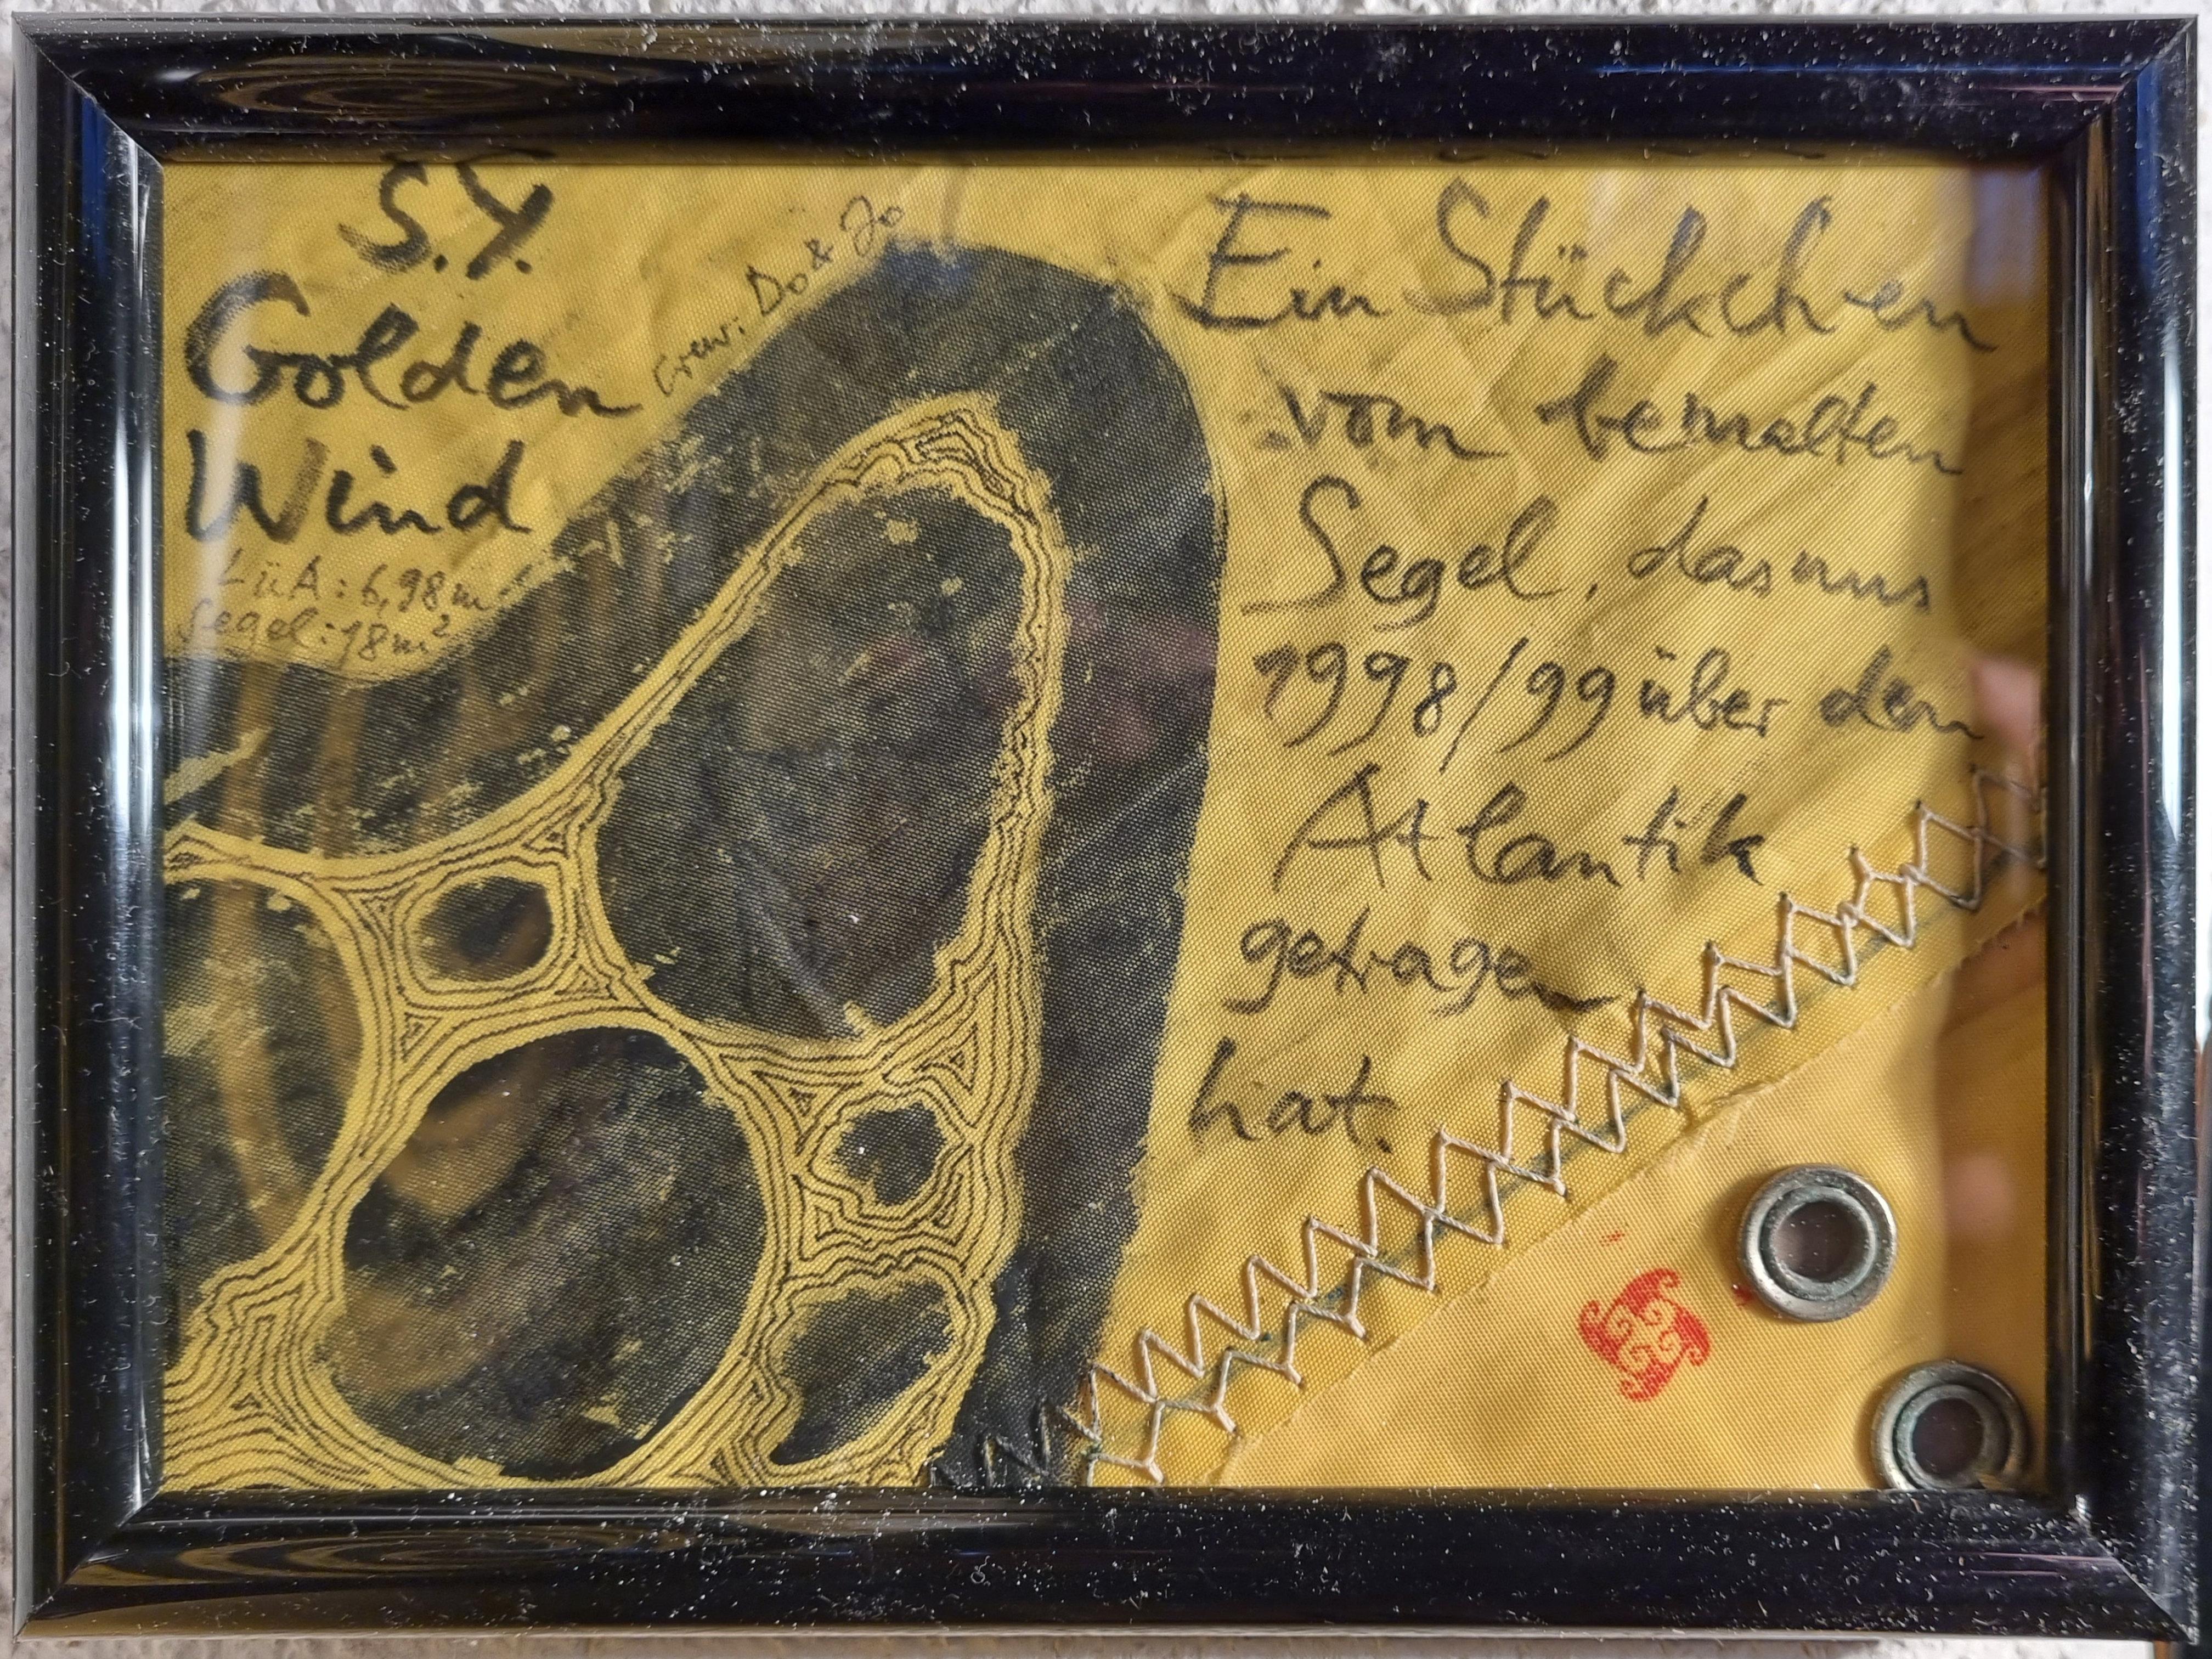 S.Y.
Golden
Wind
LüA: 6,98m
Segel: 18m²
Crew: Do & Jo
Ein Stückchen
vom bemalten
Segel, das uns
1998/99 über den
Atlantik
getragen
hat.